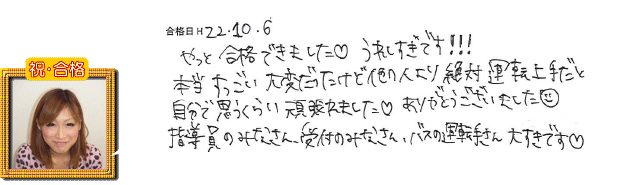 合格日 H22.10.6
やっと合格できました♡ うれしすぎです!!!
祝・合格
本当すっごい大変だったけど他の人より絶対運転上手だと
自分で思うくらい頑張れました♡ ありがとうございいたした☺
指導員のみなさん、受付のみなさん、バスの運転手さん大すきです♡